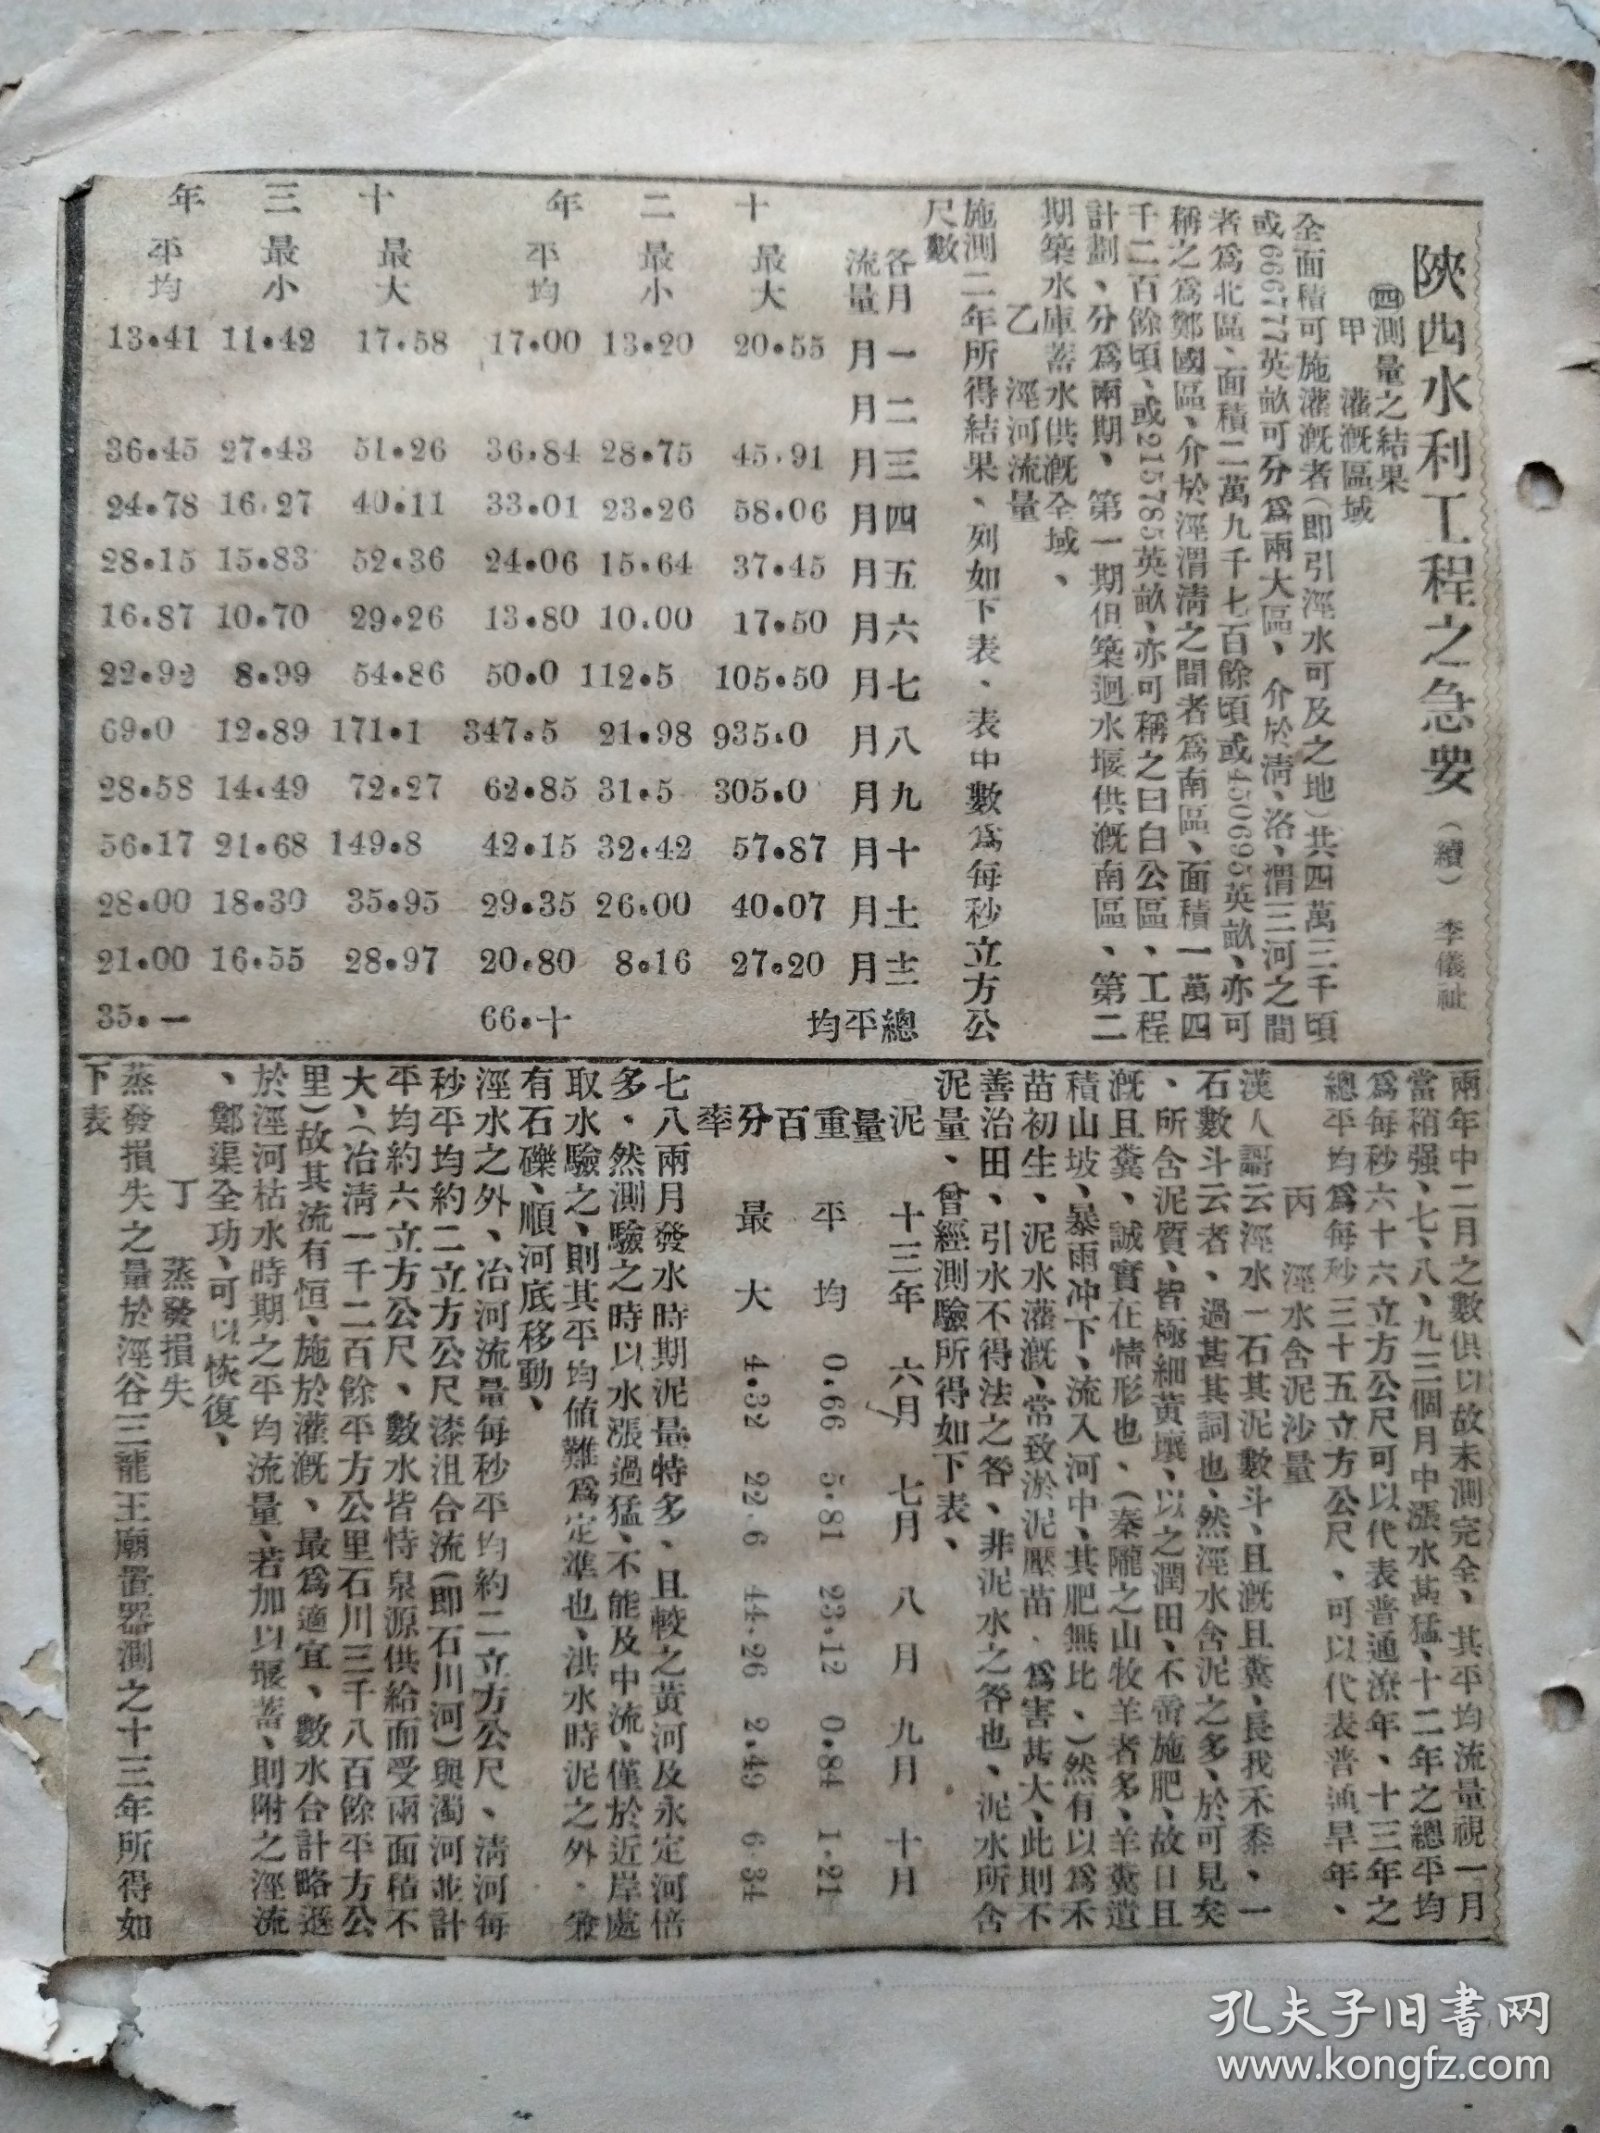 陝西水利工程之急要（續）　李儀祉
㊃測量之結果
甲　灌漑區域
全面積可施灌漑者（卽引涇水可及之地）共四萬三千頃
或666777英畝可分爲兩大區、介於淸、洛、渭三河之間
者爲北區、面積二萬九千七百餘頃或450695英畝、亦可
稱之爲鄭國區、介於涇渭淸之間者爲南區、面積一萬四
千二百餘頃、或215785英畝、亦可稱之曰白公區、工程
計劃、分爲兩期、第一期但築迴水堰供漑南區、第二
期築水庫蓄水供漑全域、
乙　涇河流量
施測二年所得結果、列如下表、表中數爲每秒立方公
尺數
各月流量　一月　二月　三月　四月　五月　六月　七月　八月　九月　十月　十一月　十二月　總平均
十二年　最大　20.55　45.91　58.06　37.45　17.50　105.50　935.0　305.0　57.87　40.07　27.20
最小　13.20　28.75　23.26　15.64　10.00　112.5　21.98　31.5　32.42　26.00　8.16
平均　17.00　36.84　33.01　24.06　13.80　50.0　347.5　62.85　42.15　29.35　20.80　66.十
十三年　最大　17.58　51.26　40.11　52.36　29.26　54.86　171.1　72.27　149.8　35.95　28.97
最小　11.42　27.43　16.27　15.83　10.70　8.99　12.89　14.49　21.68　18.30　16.55
平均　13.41　36.45　24.78　28.15　16.87　22.92　69.0　28.58　56.17　28.00　21.00　35.一
兩年中二月之數俱以故未測完全、其平均流量視一月
當稍强、七、八、九三個月中漲水甚猛、十二年之總平均
爲每秒六十六立方公尺可以代表普通潦年、十三年之
總平均爲每秒三十五立方公尺、可以代表普通旱年、
丙　涇水含泥沙量
漢人謌云涇水一石其泥數斗、且漑且糞、長我禾黍、一
石數斗云者、過甚其詞也、然涇水含泥之多、於可見矣
、所含泥質、皆極細黃壤、以之潤田、不啻施肥、故曰且
漑且糞、誠實在情形也、（秦隴之山牧羊者多、羊糞遺
積山坡、暴雨冲下、流入河中、其肥無比、）然有以爲禾
苗初生、泥水灌漑、常致淤泥壓苗、爲害甚大、此則不
善治田、引水不得法之咎、非泥水之咎也、泥水所含
泥量、曾經測驗所得如下表、
泥量重百分率　十三年　六月　七月　八月　九月　十月
平均　0.66　5.81　23.12　0.84　1.21
最大　4.32　22.6　44.26　2.49　6.34
七八兩月發水時期泥量特多、且較之黃河及永定河倍
多、然測驗之時以水漲過猛、不能及中流、僅於近岸處
取水驗之、則其平均値難爲定準也、洪水時泥之外、兼
有石礫、順河底移動、
涇水之外、冶河流量每秒平均約二立方公尺、淸河每
秒平均約二立方公尺漆沮合流（卽石川河）與濁河並計
平均約六立方公尺、數水皆恃泉源供給而受雨面積不
大、（冶淸一千二百餘平方公里石川三千八百餘平方公
里）故其流有恒、施於灌漑、最爲適宜、數水合計略遜
於涇河枯水時期之平均流量、若加以堰蓄、則附之涇流
、鄭渠全功、可以恢復、
丁　蒸發損失
蒸發損失之量於涇谷三龍王廟置器測之十三年所得如
下表
孔夫子旧書网
www.kongfz.com